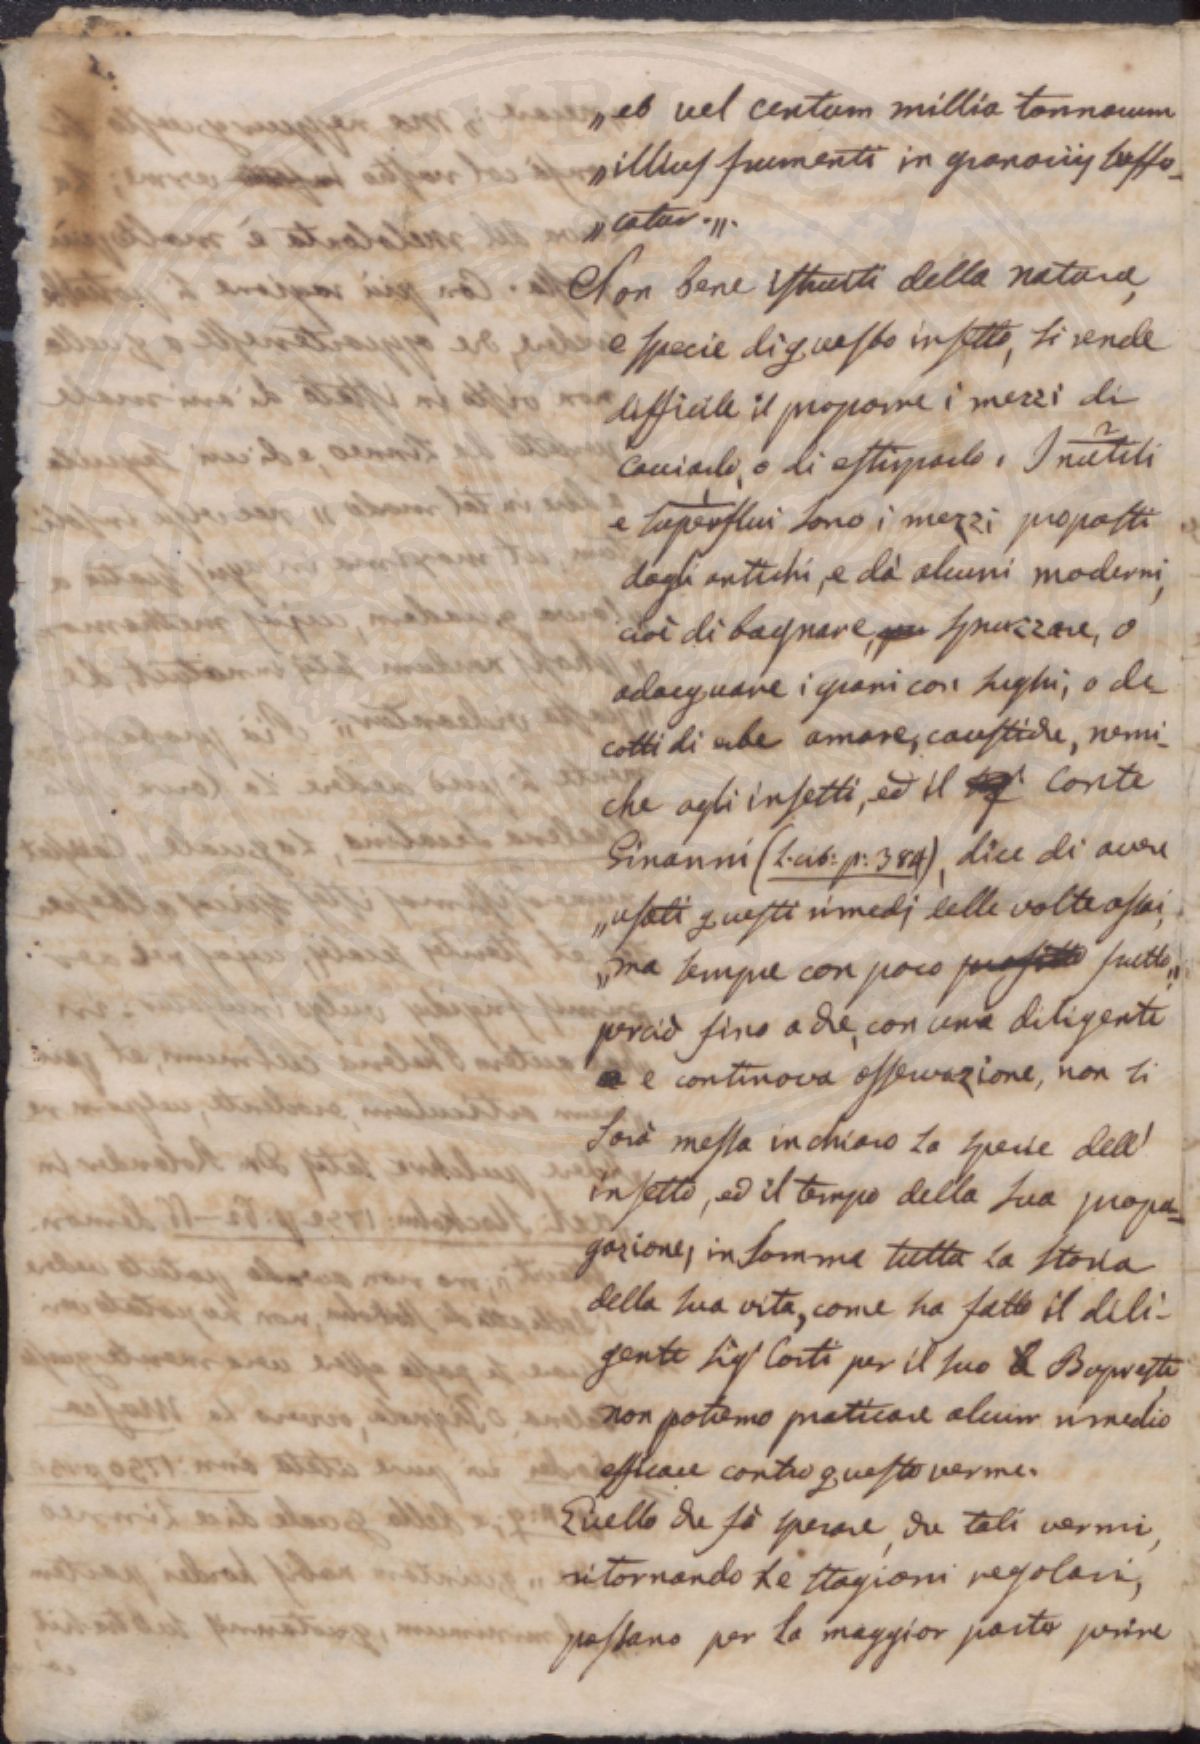 „eo vel centum millia tonnarum
„illius frumenti in granariis suffo-
„catur.„.
Non bene istruiti della natura,
e specie di questo insetto, si rende
difficile il proporre i mezzi di
cacciarlo, o di estirparlo. Inutili
e superflui sono i mezzi proposti
dagli antichi, e dà alcuni moderni,
cioè di bagnare, spruzzare, o
adacquare i grani con sughi, o de-
cotti di erbe amare, caustiche, nemi-
che agli insetti, ed il Conte
Ginanni (l. cit: p: 384), dice di avere
„usati questi rimedj delle volte assai,
„ma sempre con poco profitto frutto„
perciò fino a che, con una diligente
e continova osservazione, non si
sarà messa in chiaro la specie dell'
insetto, ed il tempo della sua propa-
gazione, in somma tutta la storia
della sua vita, come ha fatto il dili-
gente Sig.r Corti per il suo Bupreste
non potremo praticare alcun rimedio
efficace contro questo verme.
Quello che fà sperare, che tali vermi,
ritornando le stagioni regolari,
possano per la maggior parte perire